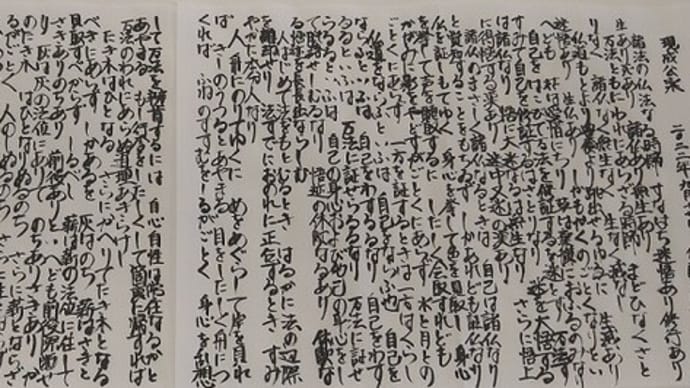 現成公案 二〇二二年九月
諸法の仏法なる時節 すなはち迷悟あり修行あり
生あり死あり 諸仏あり衆生あり
万法ともにわれにあらざる時節 まどひなくさと
りなく 諸仏なく衆生なく 生なく滅なし
仏道もとより豊倹より跳出せるゆゑに 生滅あり
迷悟あり 生仏あり しかもかくのごとくなりとい
へども 花は愛惜にちり 草は棄嫌におふるのみなり
自己をはこびて万法を修証するを迷とす 万法す
すみて自己を修証するはさとりなり 迷を大悟する
は諸仏なり 悟に大迷なるは衆生なり さらに悟上
に得悟する漢あり 迷中又迷の漢あり
諸仏のまさしく諸仏なるときは 自己は諸仏なり
と覚知することをもちゐず しかあれども証仏なり
仏を証しもてゆく 身心を挙して色を見取し 身心
を挙して声を聴取するに したしく会取すれども
かがみに影をやどすがごとくにあらず 水と月との
ごとくにあらず 一方を証するときは一方はくらし
仏道をならふといふは 自己をならふ也 自己を
ならふといふは 自己をわするるなり 自己をわす
るるといふは 万法に証せらるるなり 万法に証せ
らるるといふは 自己の身心および他己の身心をし
て脱落せしむるなり 悟迹の休歇なるあり 休歇な
る悟迹を長長出ならしむ
人はじめて法をもとむるとき はるかに法の辺際
を離却せり 法すでにおのれに正伝するとき すみ
やかに本分人なり
人 舟にのりてゆくに めをめぐらして岸を見れ
ば きしのうつるとあやまる 目をしたしく舟につ
くれば ふねのすすむをしるがごとく 身心を乱想
して万法を辨肯するには 自心自性は常住なるかと
あやまる もし行李をしたしくして箇裏に帰すれば
万法のわれにあらぬ道理あきらけし
たき木はひとなる さらにかへりてたき木となる
べきにあらず しかあるを 灰はのち 薪はさきと
見取すべからず しるべし 薪は薪の法位に住して
さきありのちあり 前後ありといへども前後際断せ
り 灰は灰の法位にありて のちありさきあり か
のたき木 はひとなりぬるのち さらに薪とならざ
るがごとく 人のしぬるのち さらに生とならず